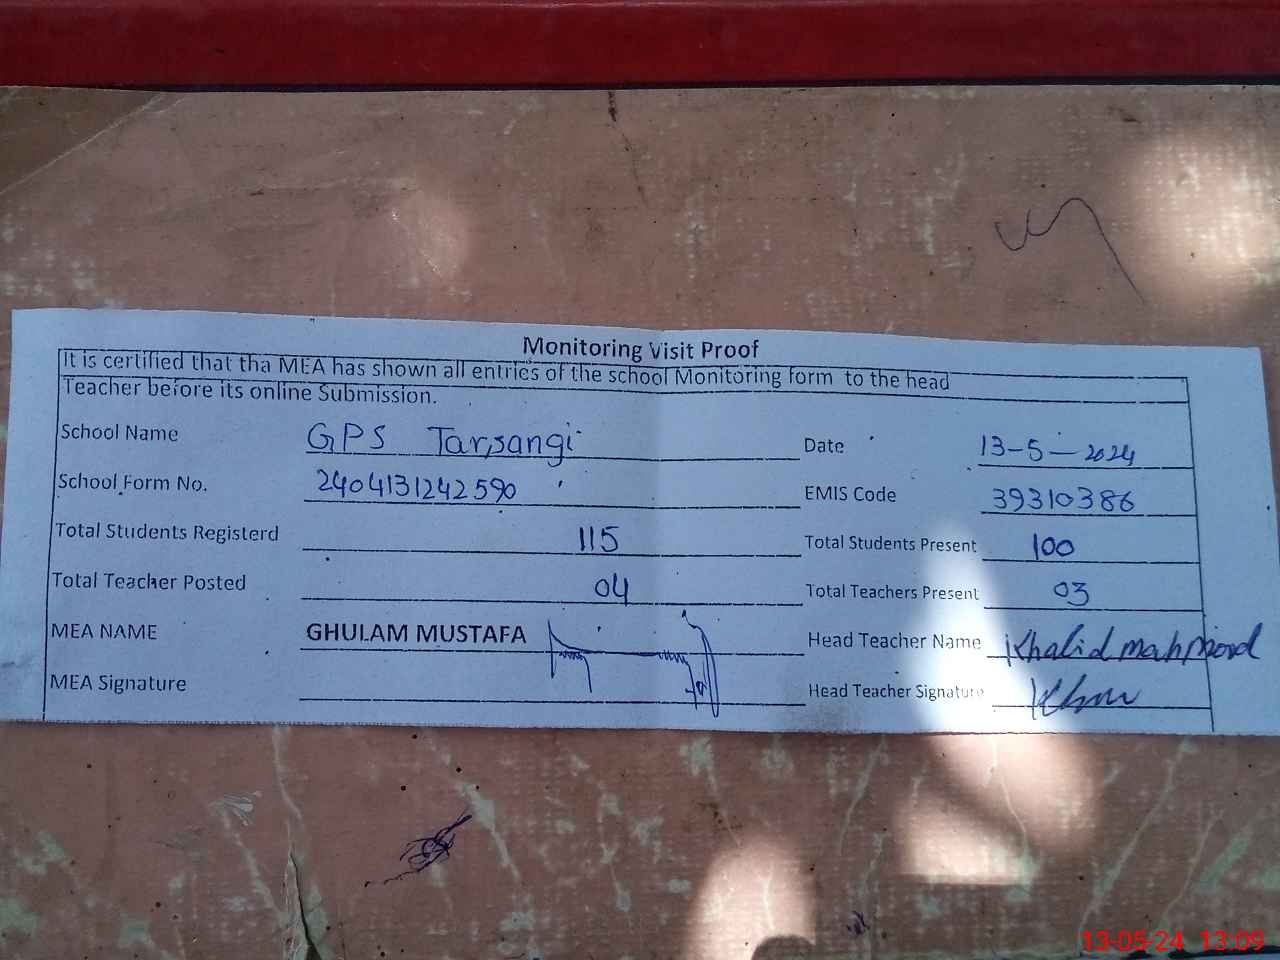 Monitoring Visit Proof
It is certified that tha MEA has shown all entries of the school Monitoring form to the head
Teacher before its online Submission.
School Name GPS Tarsangi Date 13-5-2024
School Form No. 2404131242590 EMIS Code 39310386
Total Students Registerd 115 Total Students Present 100
Total Teacher Posted 04 Total Teachers Present 03
MEA NAME GHULAM MUSTAFA Head Teacher Name Khalid mahmood
MEA Signature Head Teacher Signature
13-05-24 13:09